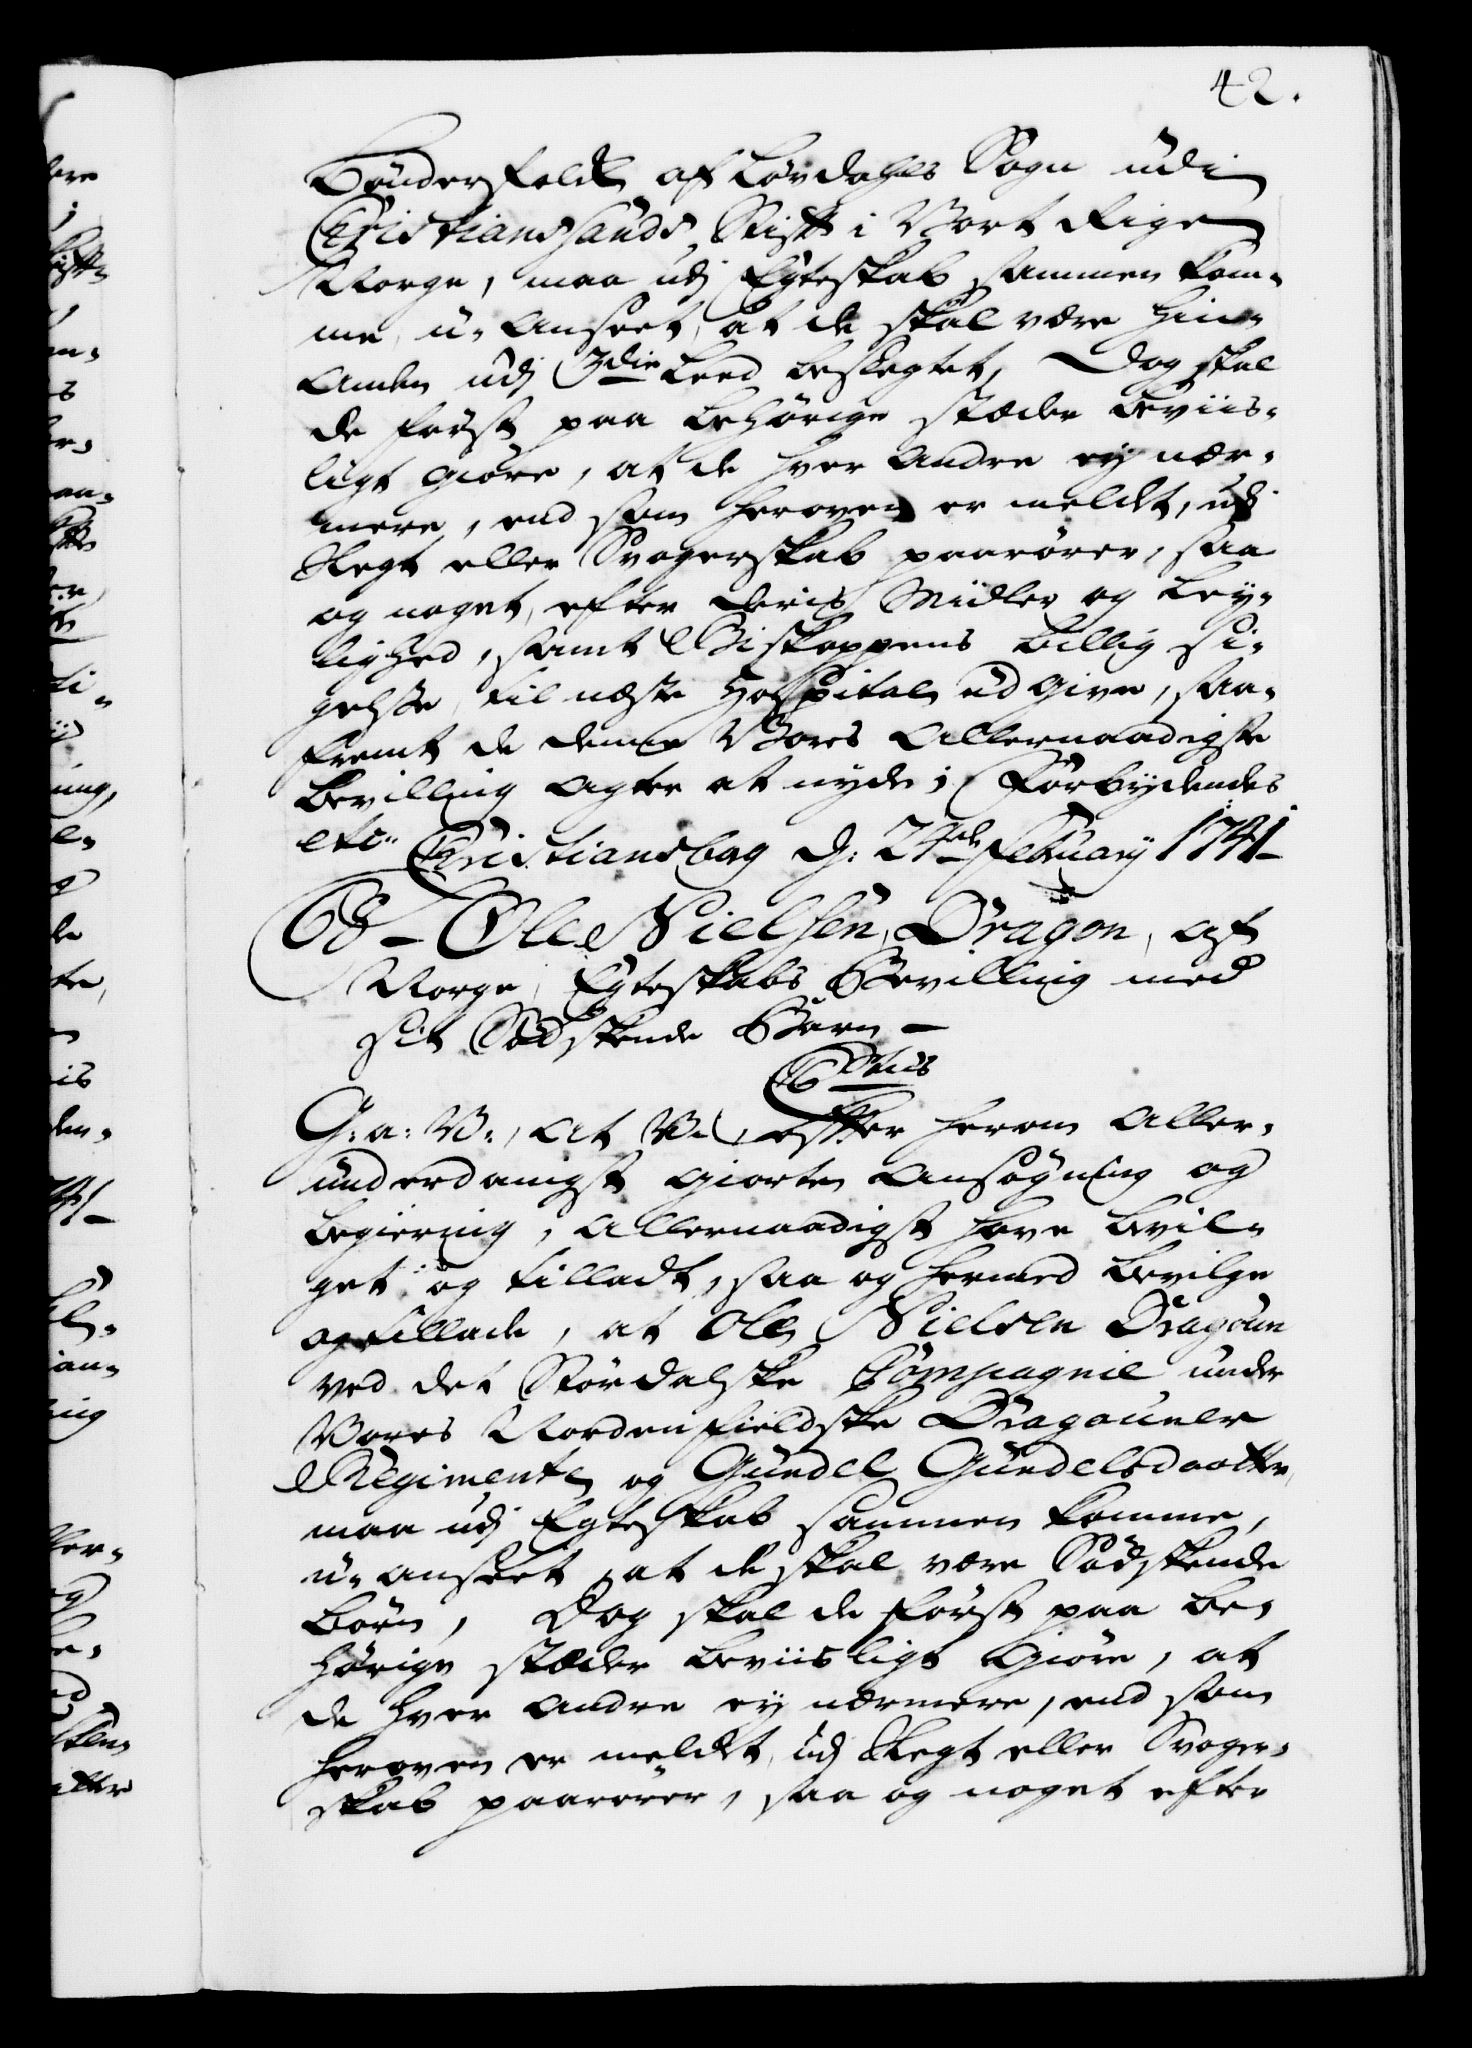 42.
Bønderfolk af Løvdahls Sogn udi
Christiansands Stift i Vort Rige
Norge, maa udj Egteskab sammen kom-
me, u-anseet, at de skal være hin-
anden udj 3die Leed beslegtet, Dog skal
de først paa behørige stæder beviis-
ligt giøre, at de hver andre ey nær-
mere, end som heroven er meldt, udj
Slegt eller Svogerskab paarører, saa
og noget, efter deris Midler og Ley-
lighed, samt Biskoppens billig si-
gelse, til næste Hospital udgive, saa-
fremt de denne Vores Allernaadigste
Bevilling agter at nyde; Forbydendes
etc. Christiansborg d: 24de February 1741
68 - Ole Nielsen, Dragon, af
Norge, Egteskabs Bevilling med
sit Sødskende Barn -
C 6tus
G: a: V:, at Vi, efter herom Aller-
underdanigst giorte Ansøgning og
begiering, Allernaadigst have bevil-
get og tilladt, saa og hermed bevilge
og tillade, at Ole Nielsen Dragoun
ved det Størdalske Compagnie under
Vores Nordenfieldske Dragouner
Regimente og Gundel Gundelsdaatter,
maa udj Egteskab sammen komme,
u-anseet, at de skal være Sødskende
Børn, Dog skal de først paa be-
hørige stæder beviisligt giøre, at
de hver andre ey nærmere, end som
heroven er meldt, udj Slegt eller Svoger-
skab paarører, saa og noget efter